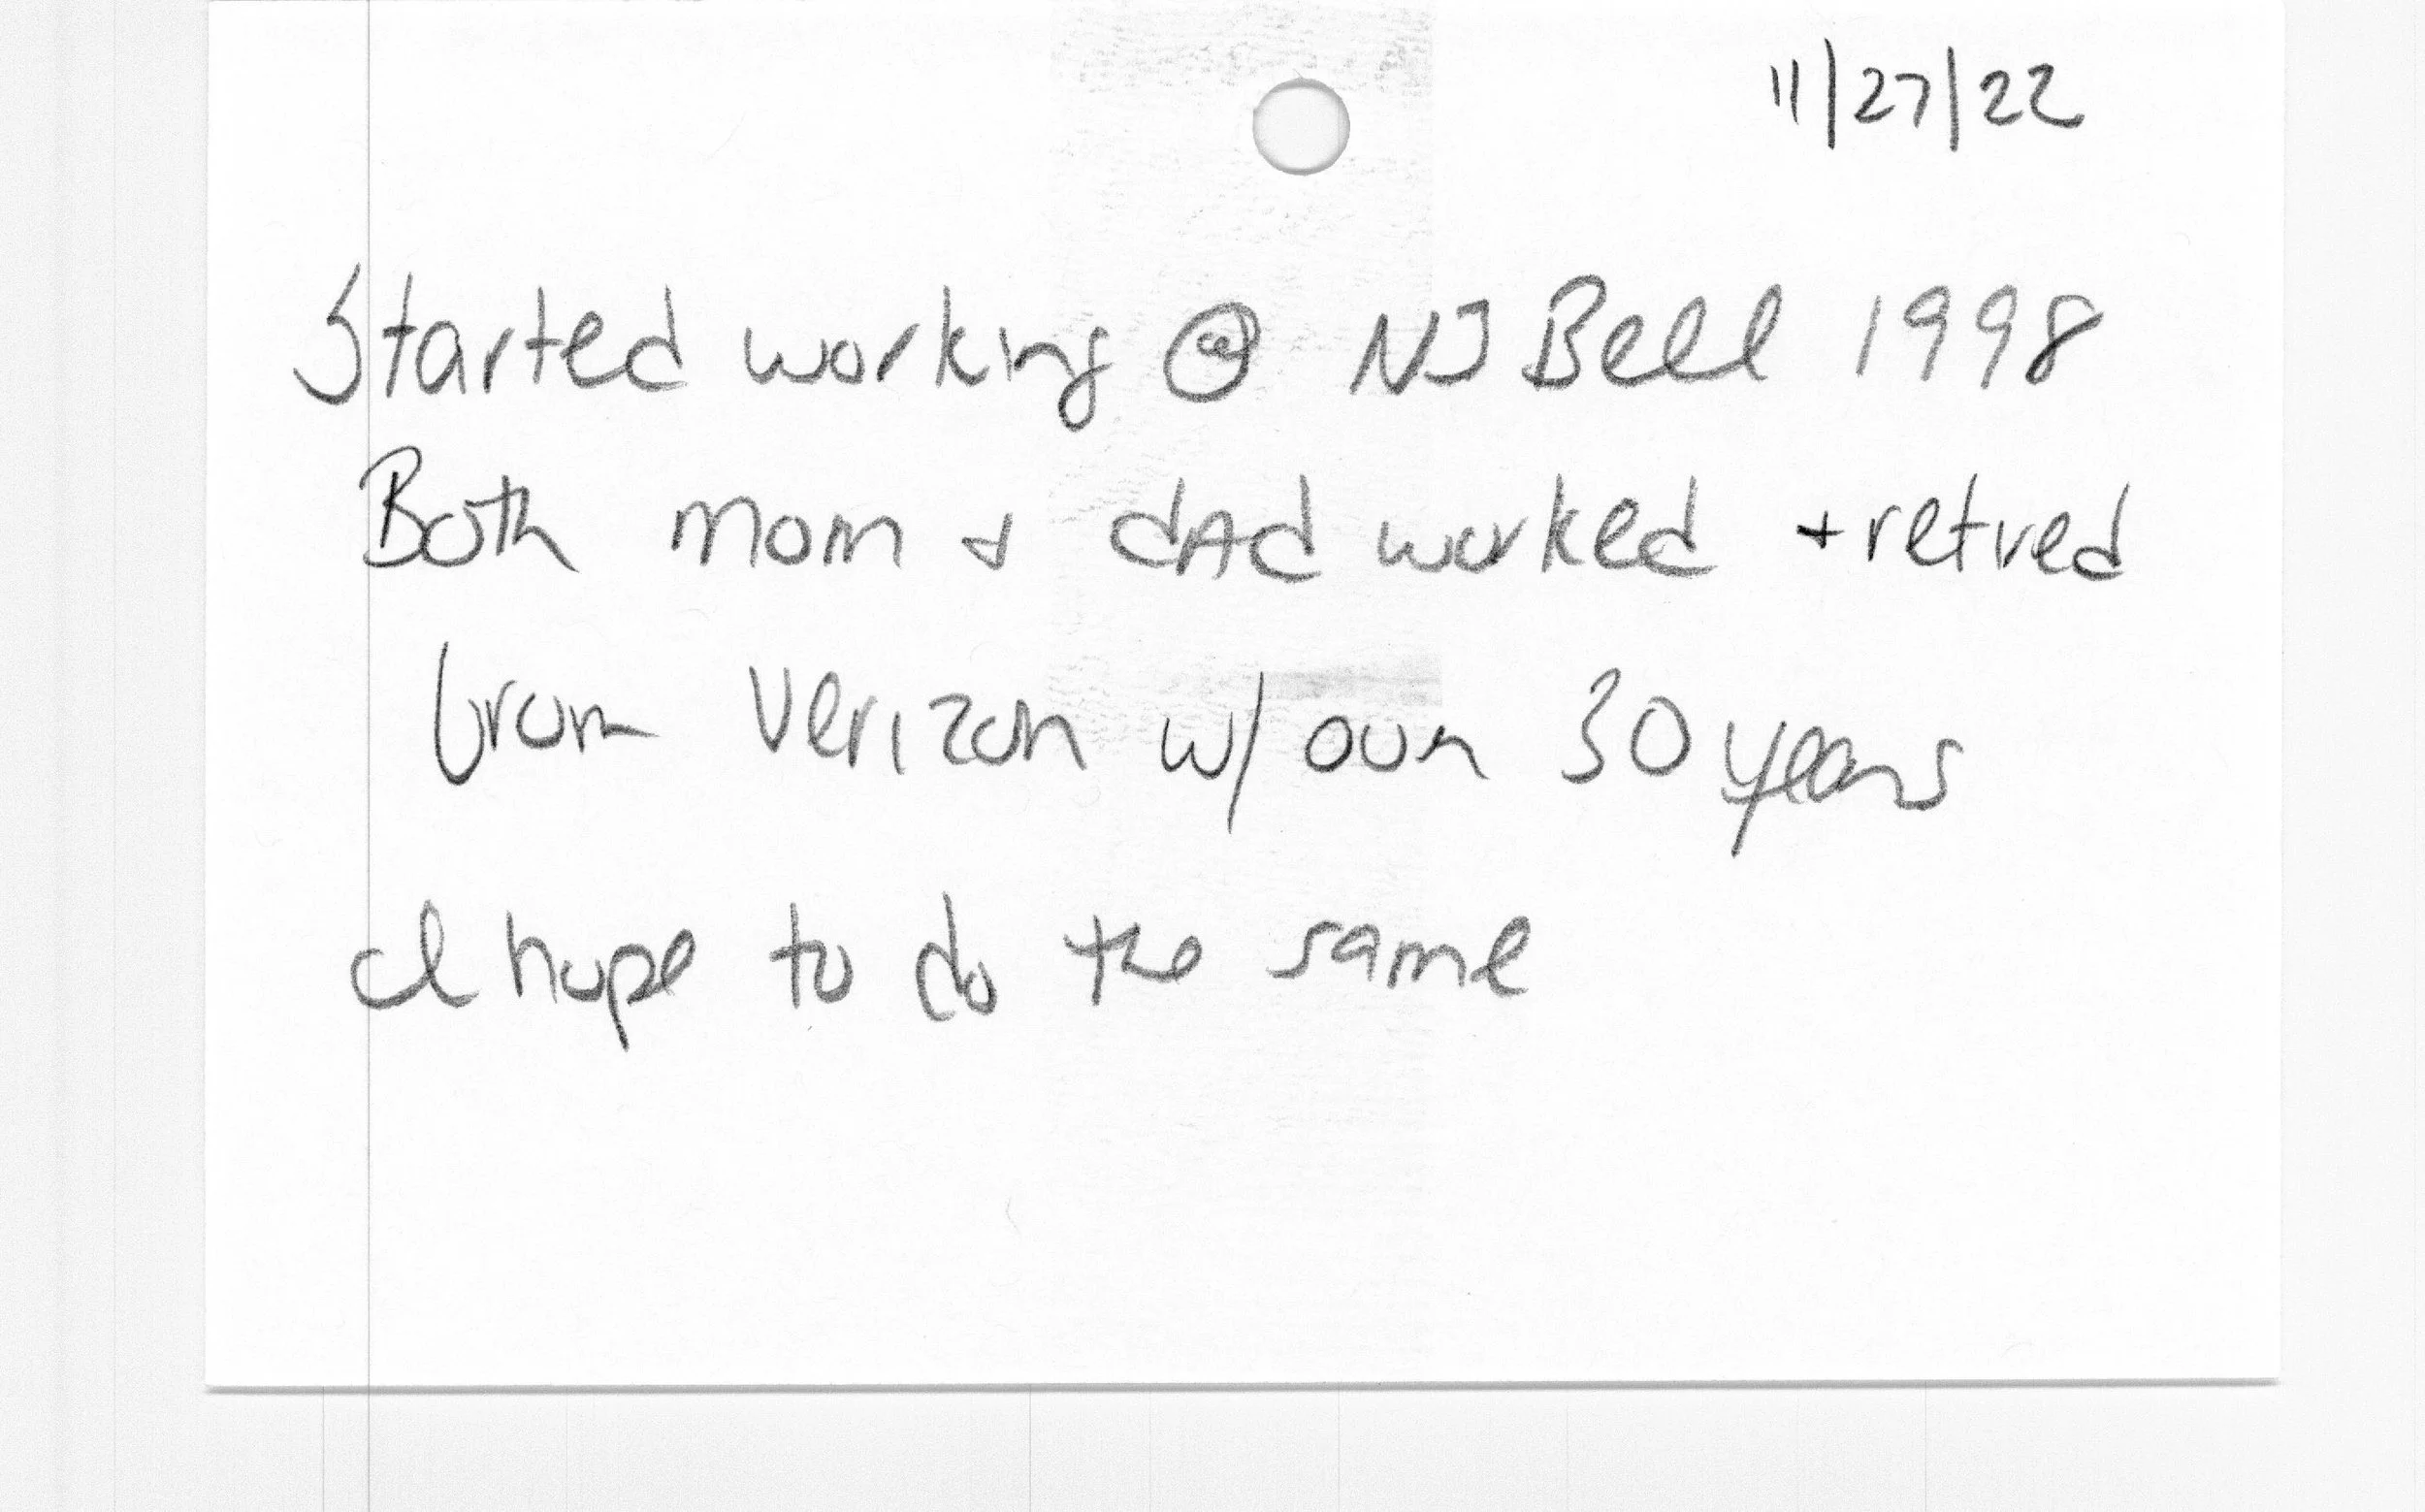 11/27/22
Started working @ NJ Bell 1998
Both mom & dAd worked + retired
from Verizon w/ over 30 years
I hope to do the same